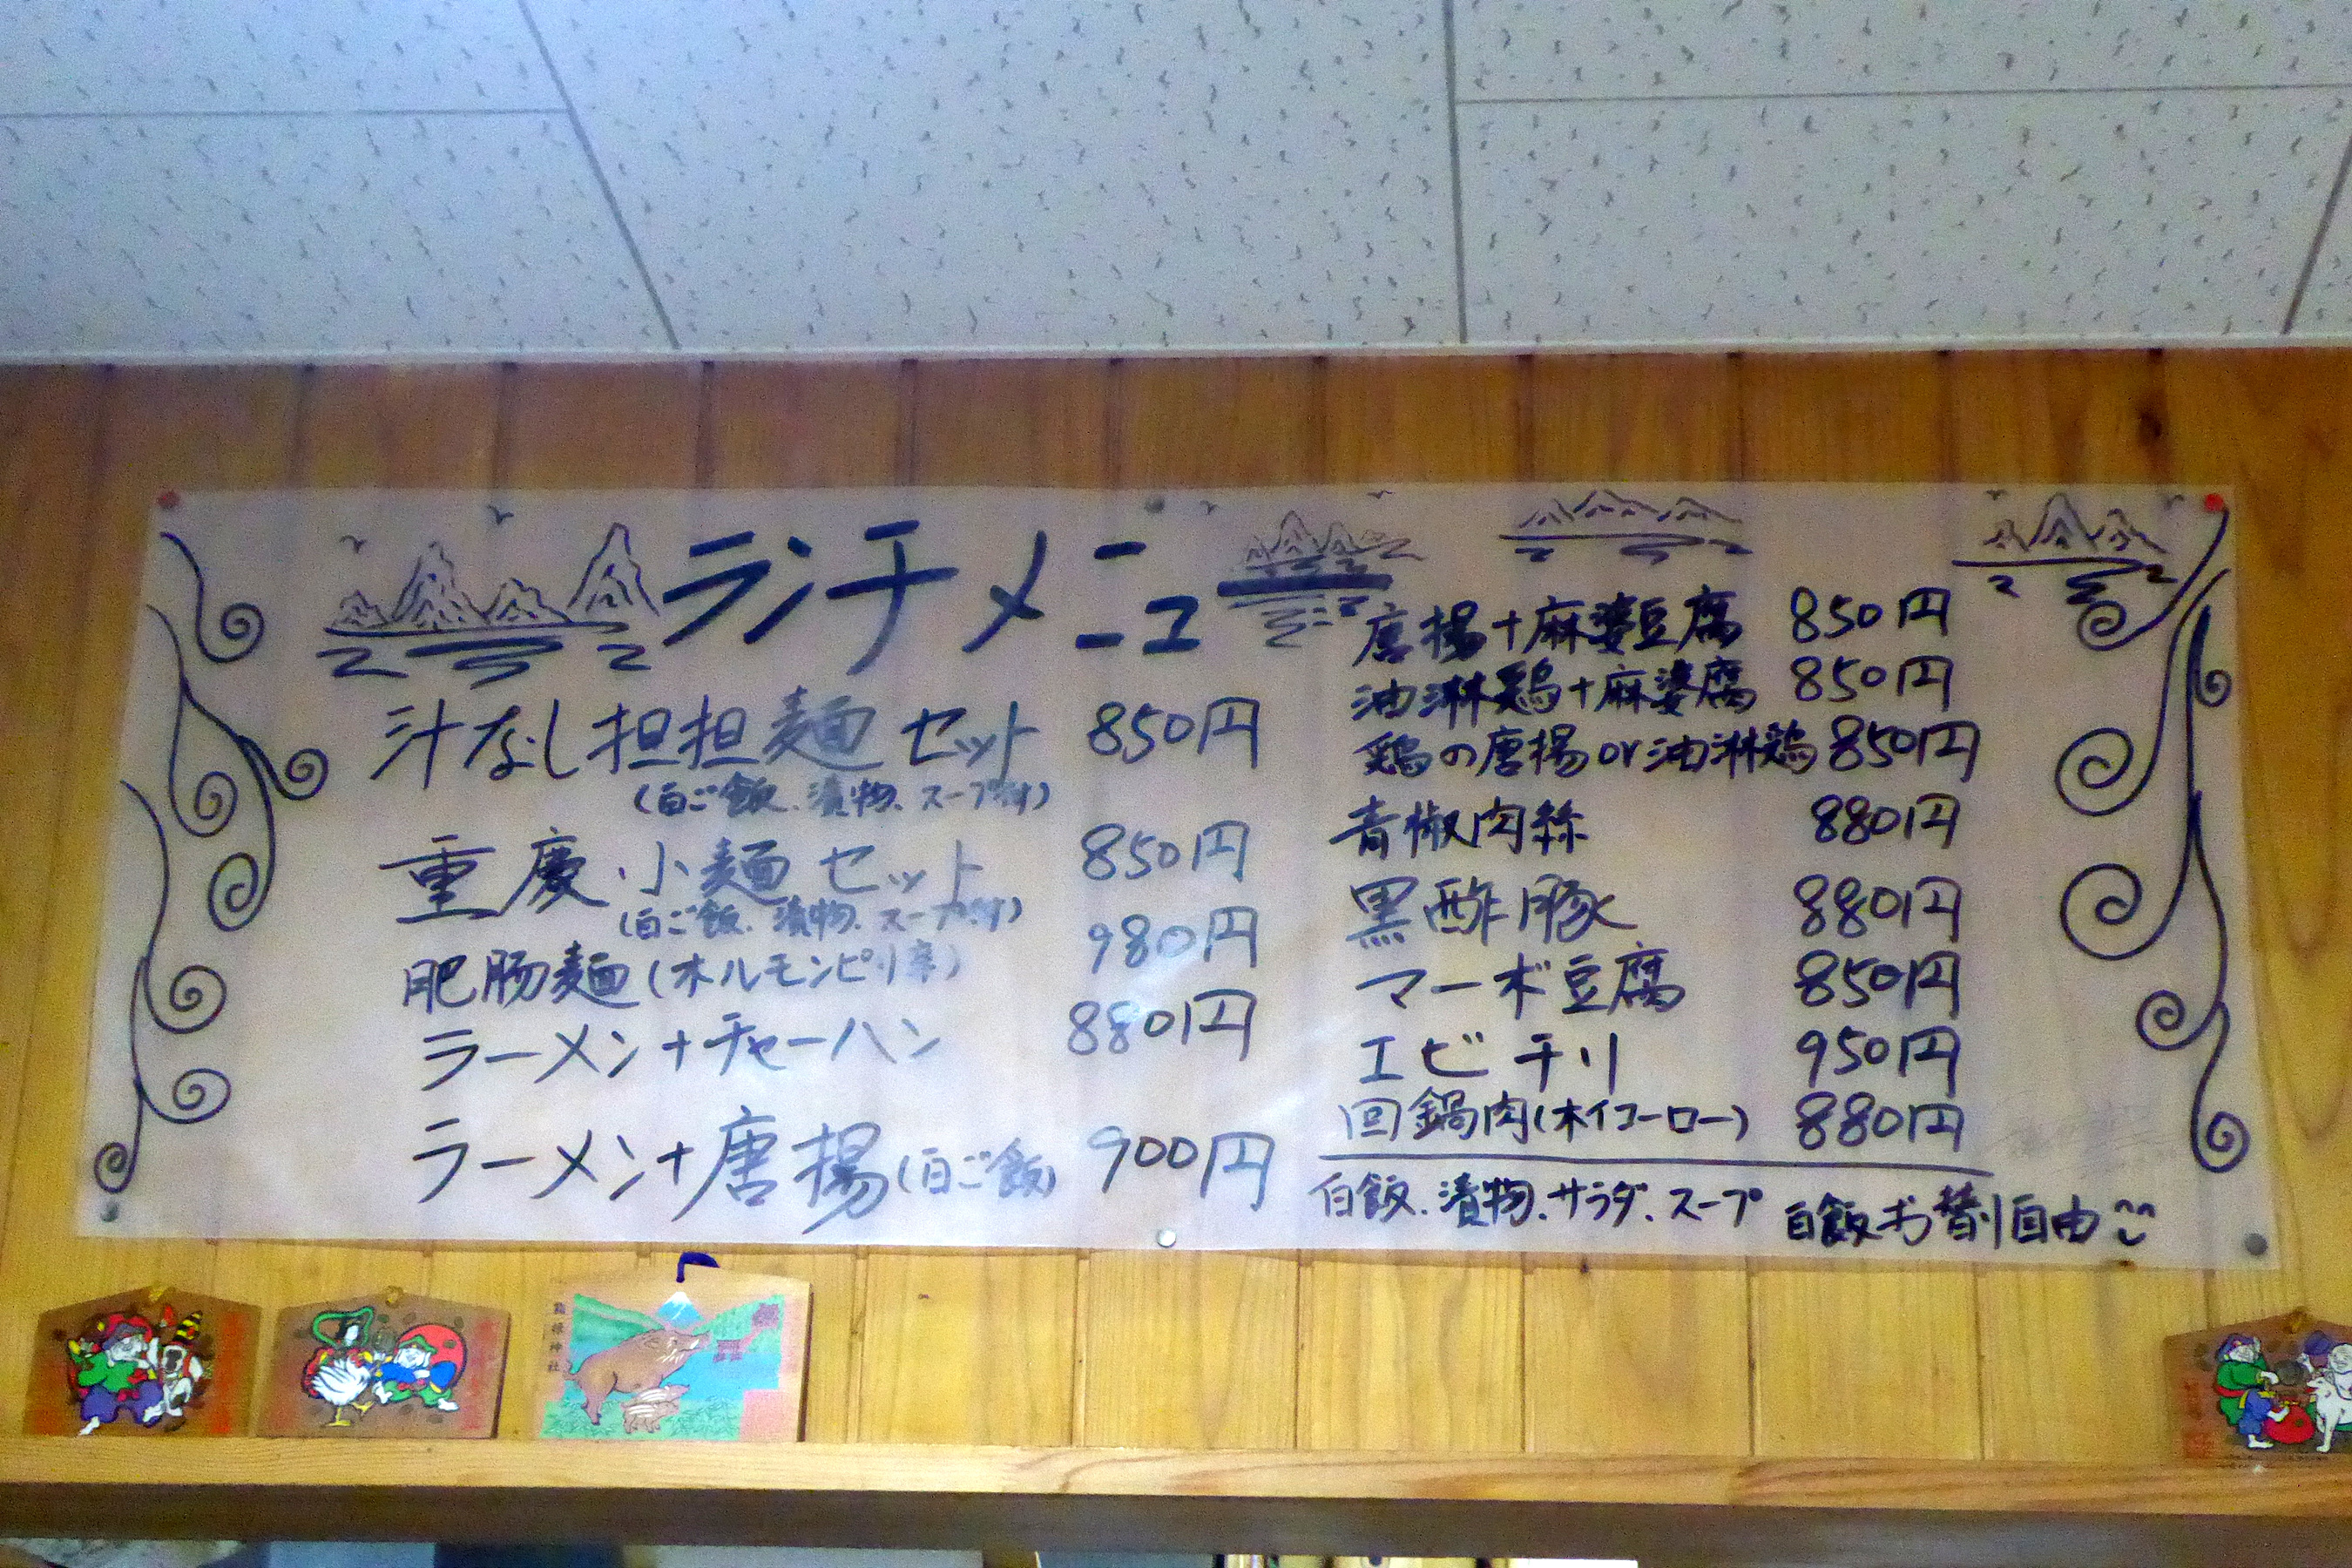 ランチメニュ
汁なし担担麺セット 850円
(白ご飯、漬物、スープ付)
重慶小麺セット 850円
(白ご飯、漬物、スープ付)
肥腸麺(ホルモンピリ辛) 980円
ラーメン+チャーハン 880円
ラーメン+唐揚(白ご飯) 900円
唐揚+麻婆豆腐 850円
油淋鶏+麻婆腐 850円
鶏の唐揚or油淋鶏 850円
青椒肉絲 880円
黒酢豚 880円
マーボ豆腐 850円
エビチリ 950円
回鍋肉(ホイコーロー) 880円
白飯、漬物、サラダ、スープ 白飯お替り自由
箱根神社